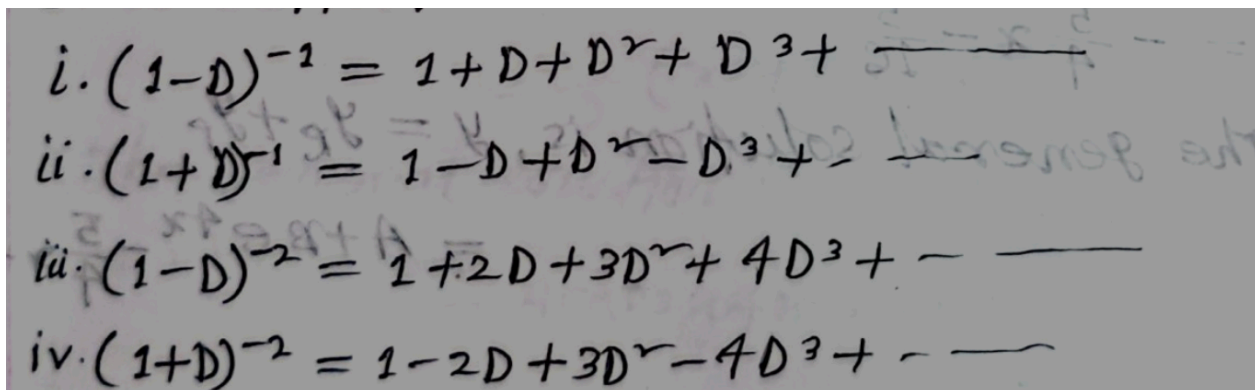 i. (1-D)⁻¹ = 1+D+D²+D³+ ———
ii. (1+D)⁻¹ = 1-D+D²-D³+- ——
iii. (1-D)⁻² = 1+2D+3D²+4D³+- ———
iv. (1+D)⁻² = 1-2D+3D²-4D³+- ——